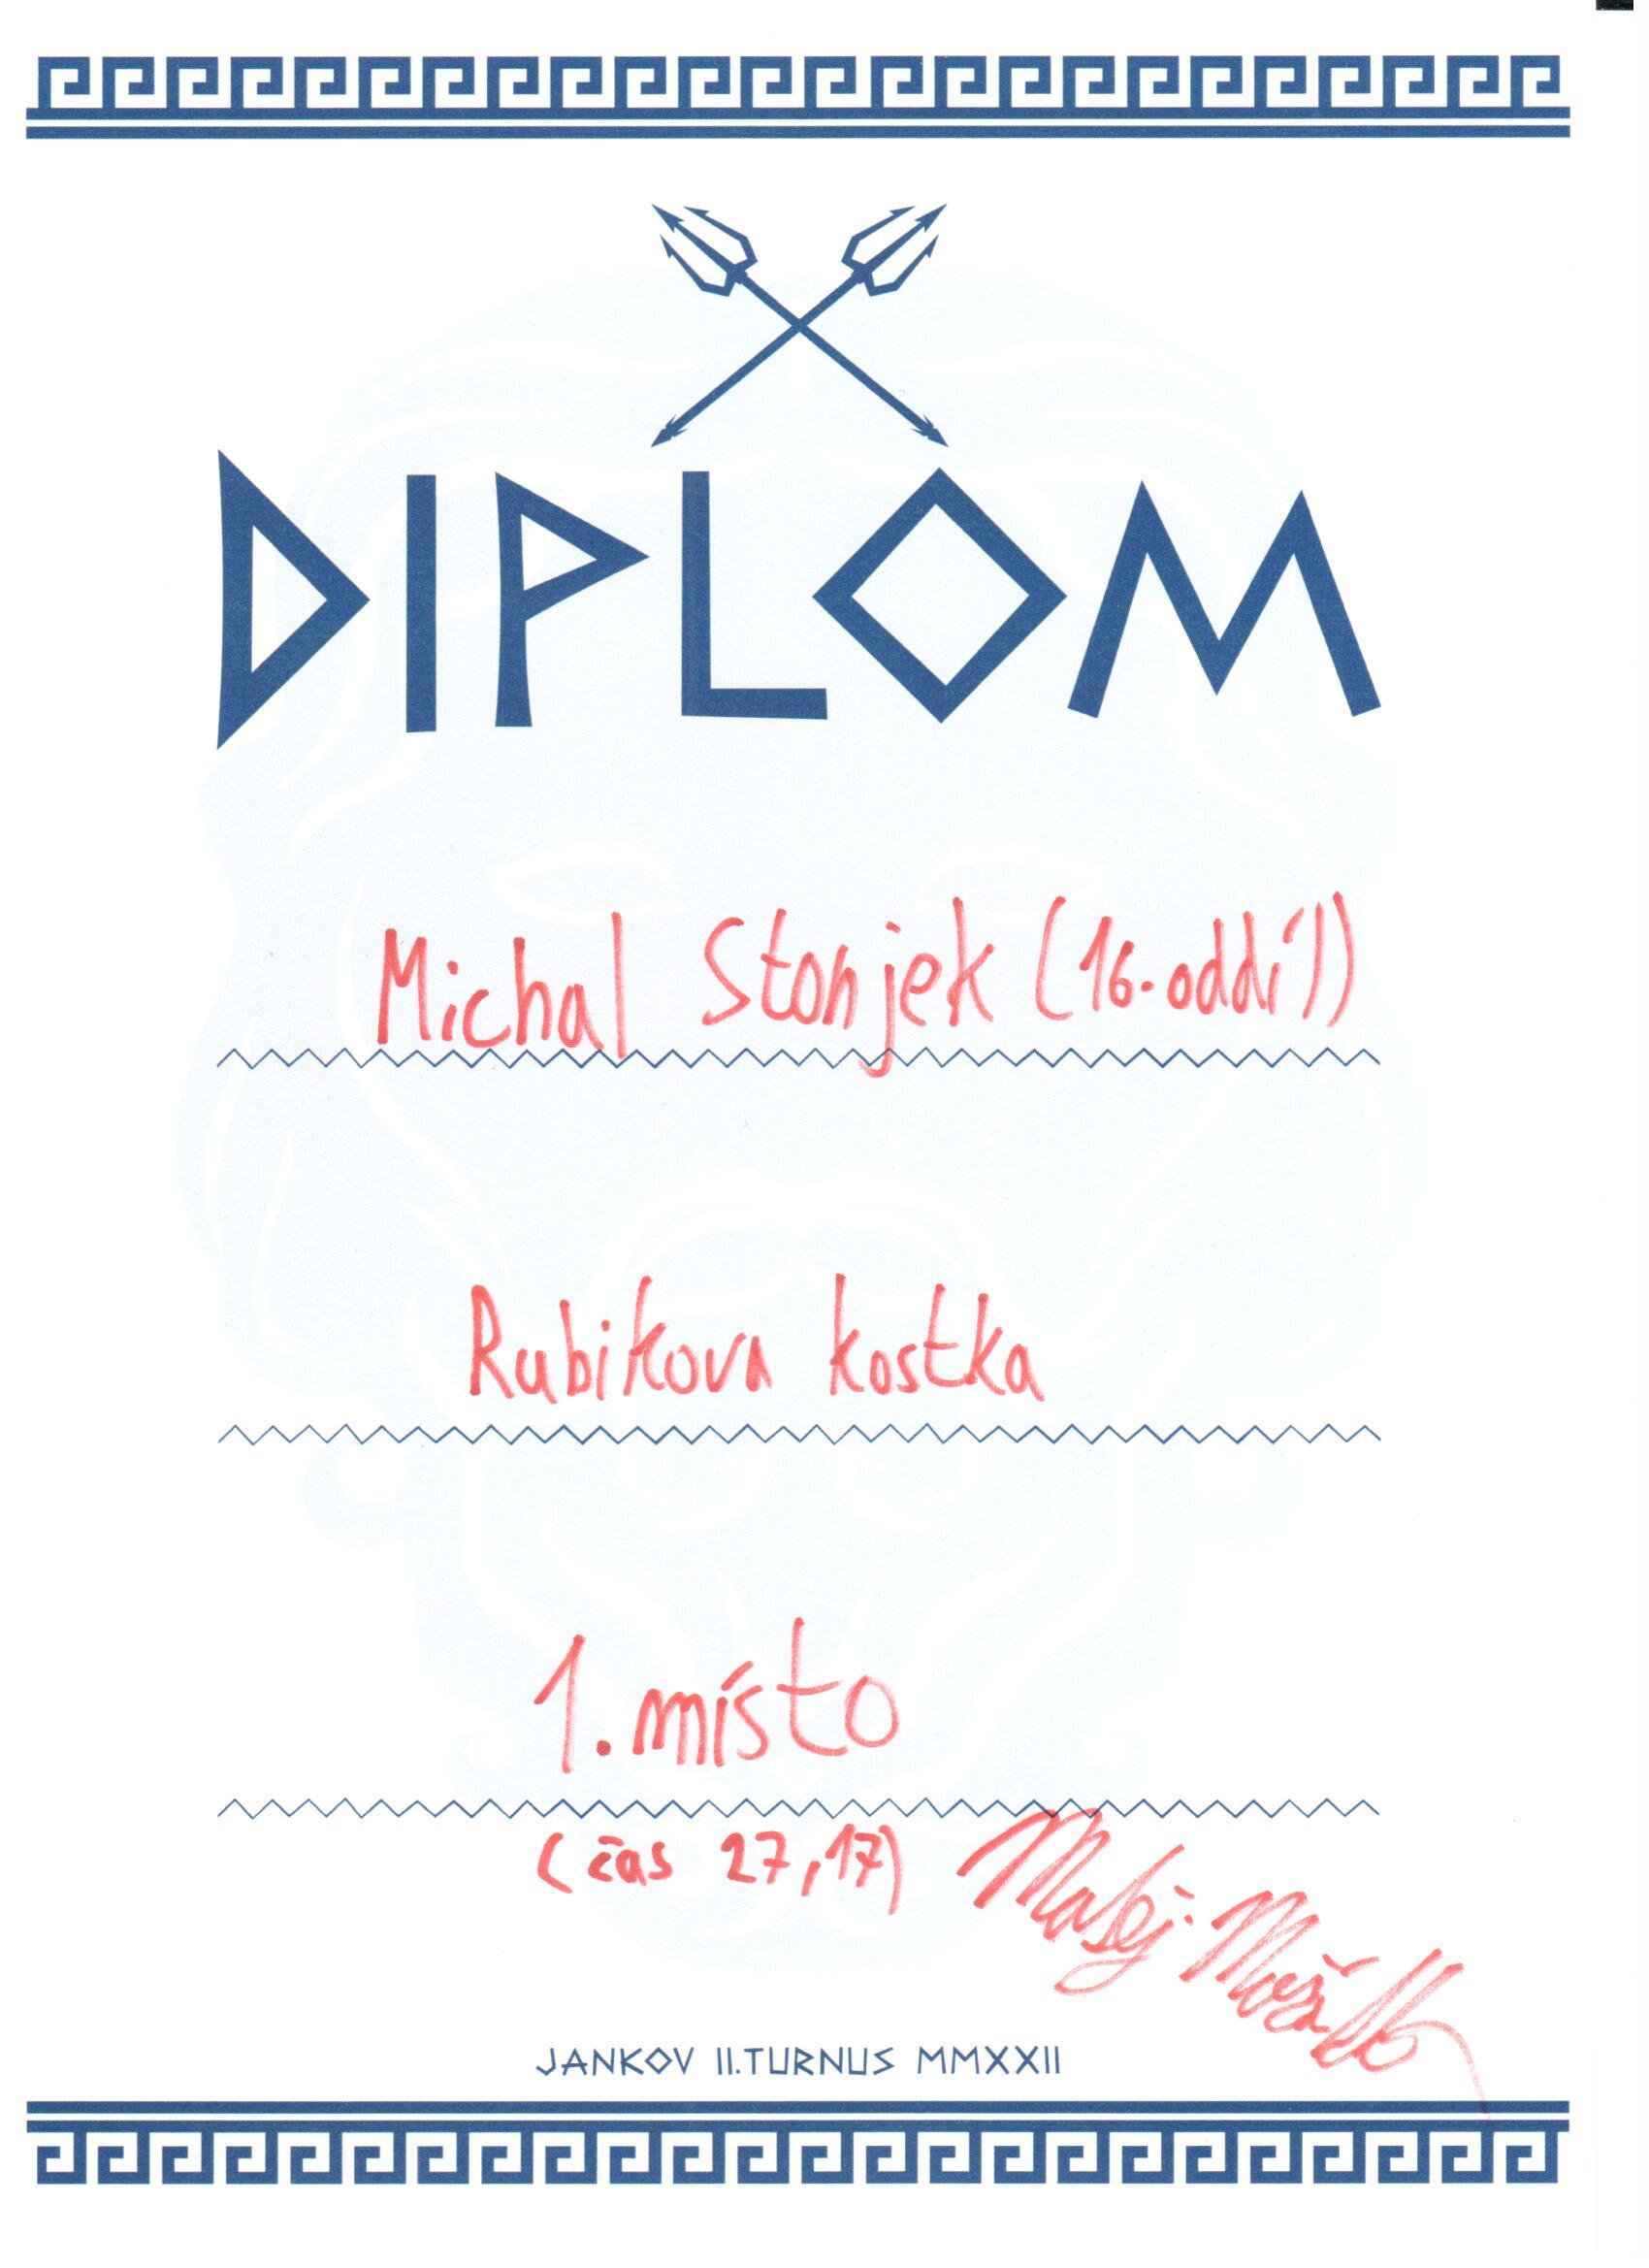 DIPLOM
Michal Stonjek (16. oddíl)
Rubikova kostka
1. místo
(čas 27,17)
Matěj
JANKOV II.TURNUS MMXXII